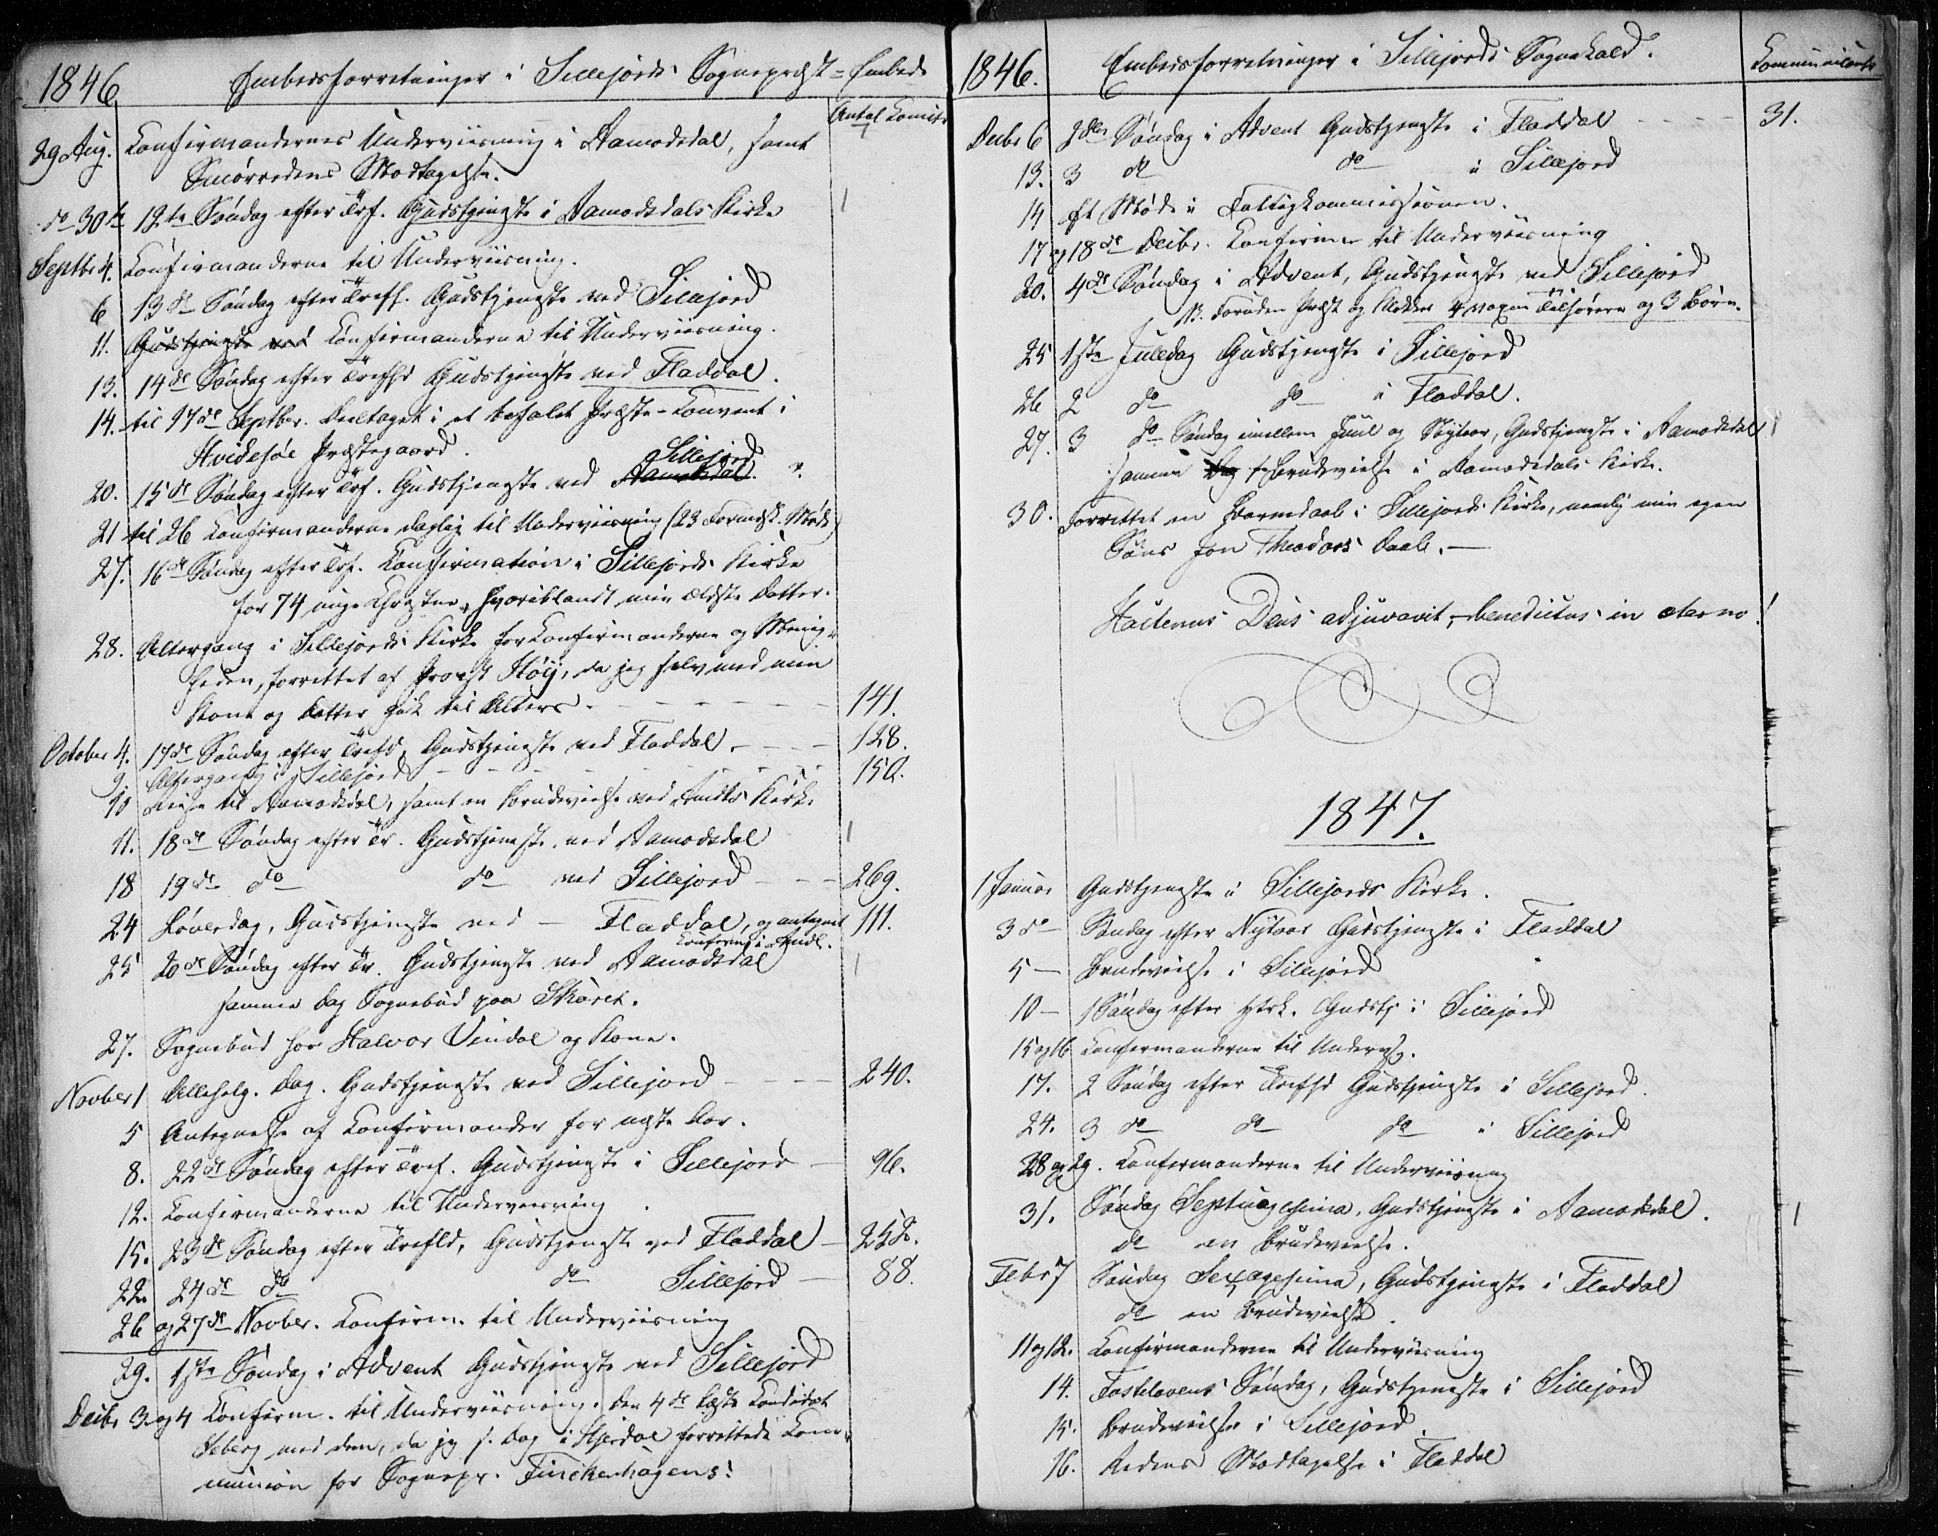 1846 Embedsforretninger i Sillejords Sognepræst=Embede
Antal Comite
29 Aug. Confirmandernes Underviisning i Aamodsdal, samt
Smørredens Modtagelse.
do 30te 12te Søndag efter Trf. Gudstjeneste i Aamodsdals Kirke 1
Septbr 4. Confirmanderne til Underviisning.
6 13de Søndag efter Treff. Gudstjeneste ved Sillejord
11. Gudstjeneste ved Confirmanderne til Underviisning.
13. 14de Søndag efter Trefhd Gudstjeneste ved Fladdal.
14. til 17de Septbr. Deeltaget i et befalet Præste-Convent i
Hvidesøe Præstegaard.
Sillejord
20. 15de Søndag efter Trf. Gudstjeneste ved Aamodsdal.
21 til 26 Confirmanderne daglig til Underviisning (23 Formdsk. Møde)
27. 16de Søndag efter Trf. Confirmation i Sillejords Kirke
for 74 unge Christne, hvoriblandt min ældste Datter.
28. Altergang i Sillejords Kirke for Confirmanderne og Menig-
heden, forrettet af Provst Høÿ, da jeg selv med min
Kone og Datter gik til Alters. 141.
October 4. 17de Søndag efter Trefd. Gudstjeneste ved Fladdal. 128.
9 Altergang i Sillejord 150.
10 Reise til Aamodsdal, samt en Brudevielse ved Kirke
11. 18de Søndag efter Tr. Gudstjeneste ved Aamodsdal 1
18 19de do do ved Sillejord 269.
24 Løverdag, Gudstjeneste ved Fladdal, og antegnet 111.
Confirm. i
25 20de Søndag efter Tr. Gudstjeneste ved Aamodsdal 1
samme Dag Sognebud paa Skoret.
27. Sognebud hos Halvor Vindal og Kone.
Novber 1 Allehelg. Dag. Gudstjeneste ved Sillejord 240.
5 Antegnelse af Confirmander for næste Aar.
8. 22de Søndag efter Tref. Gudstjeneste i Sillejord 96.
12. Confirmanderne til Underviisning.
15. 23de Søndag efter Trefld, Gudstjeneste ved Fladdal 252.
22. 24de do do Sillejord 88.
26 og 27de Novber. Confirm. til Underviisning
29. 1ste Søndag i Advent Gudstjeneste ved Sillejord
Decbr 3 og 4 Confirm. til Underviisning. Den 4de læste Candidat
Seberg med dem, da jeg s. Dag i Hjerdal forrettede Com-
munion for Sognepr. Finckenhagens.
1846. Embedsforretninger i Sillejords Sognekald. Communicante
Decbr 6 2den Søndag i Advent Gudstjeneste i Fladdal 31.
13. 3 do do i Sillejord
14 Et Møde i Fattigkommissionen.
17 og 18de Decbr. Confirm til Underviisning
20. 4de Søndag i Advent, Gudstjeneste ved Sillejord
NB. Foruden Præst og Klokker 4 voxne Tilhørere og 3 Børn.
25 1ste Juledag Gudstjeneste i Sillejord
26 2 do do i Fladdal.
27. 3 do Søndag imellem Juul og Nytaar, Gudstjeneste i Aamodsdal 1
samme Dag Brudevielse i Aamodsdals Kirke.
30. Forrettet en Barnedaab i Sillejords Kirke, nemlig min egen
Søns Jon Theodors Daab.
Hactenus Deus adjuvavit, benedictus in æterno!
1847.
1 Januar Gudstjeneste i Sillejords Kirke.
3 do Søndag efter Nytaar Gudstjeneste i Fladdal
5 Brudevielse i Sillejord
10 1 Søndag efter Htrk. Gudstj i Sillejord
15 og 16 Confirmanderne til Undervsg.
17. 2 Søndag efter Trefhd Gudstjeneste i Sillejord.
24. 3 do do do i Sillejord
28 og 29. Confirmanderne til Underviisning
31. Søndag Septuagesima, Gudstjeneste i Aamodsdal. 1
do en Brudevielse.
Febr 7 Søndag Sexagesima, Gudstjeneste i Fladdal
do en Brudevielse
11 og 12. Confirmanderne til Underviisning
14. Fastelavens Søndag, Gudstjeneste i Sillejord
15. Brudevielse i Sillejord.
16. Redens Modtagelse i Fladdal